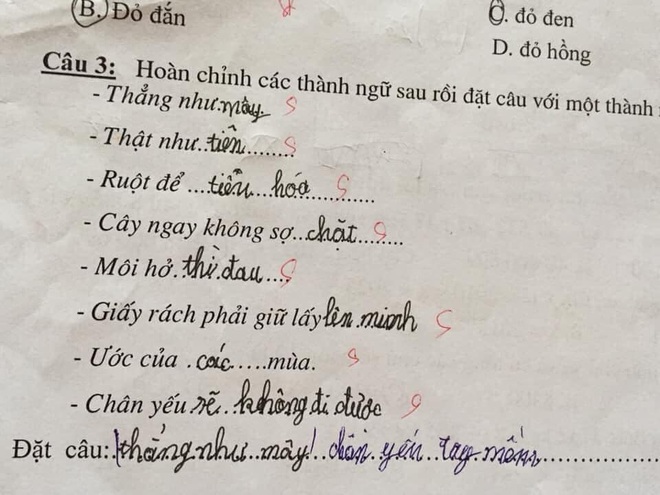 B. Đỏ đắn
C. đỏ đen
D. đỏ hồng
Câu 3: Hoàn chỉnh các thành ngữ sau rồi đặt câu với một thành
- Thẳng như mây S
- Thật như..tiền....... S
- Ruột để ...tiêu...hóa......... S
- Cây ngay không sợ..chặt....... S
- Môi hở.thì.đau.... S
- Giấy rách phải giữ lấy lên.mình S
- Ước của .các.....mùa. S
- Chân yếu sẽ..không đi được S
Đặt câu: thẳng như..mây!..chân..yếu..tay..mềm...............